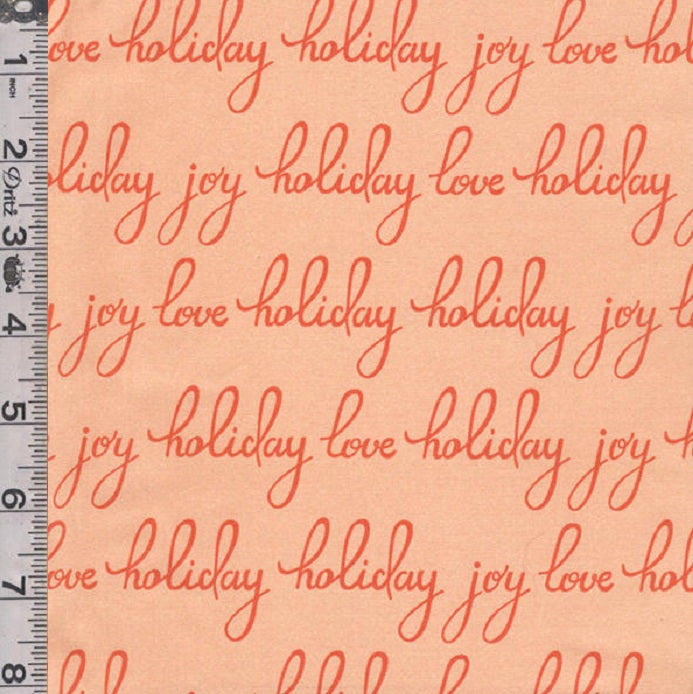 love holiday holiday joy love hol
oliday joy holiday love holiday
joy love holiday holiday joy l
joy holiday love holiday joy h
love holiday holiday joy love hol
1 INCH
2
Dritz
3
4
5
6
7
8